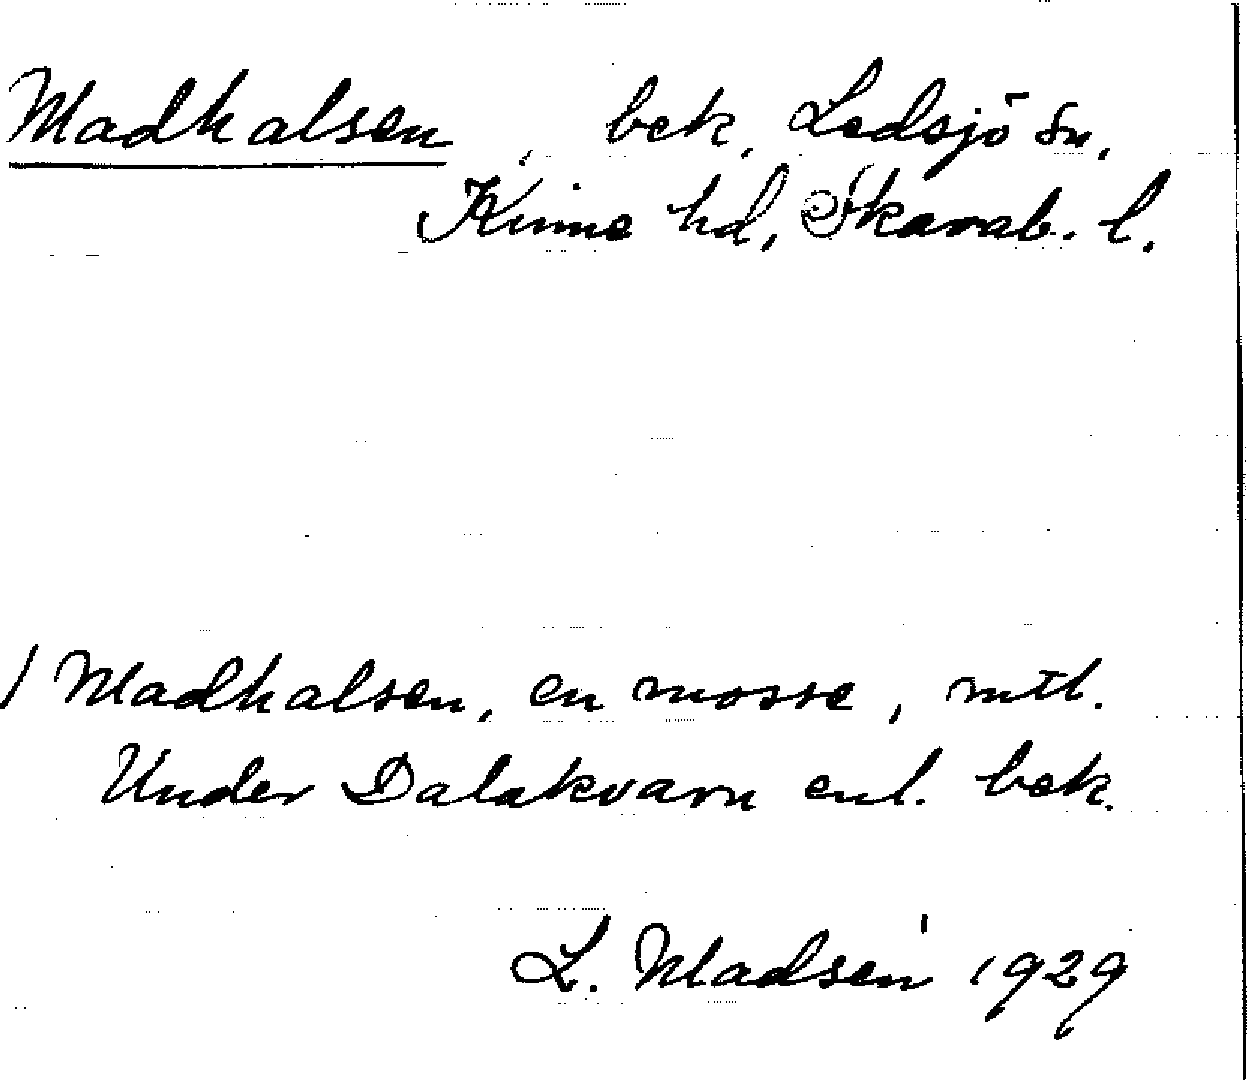 Madhalsen, bek. Ledsjö sn,
Kinne hd, Skarab. l.
/ Madhalsen, en mosse, mtl.
Under Dalakvarn enl. bek.
L. Madsén 1929